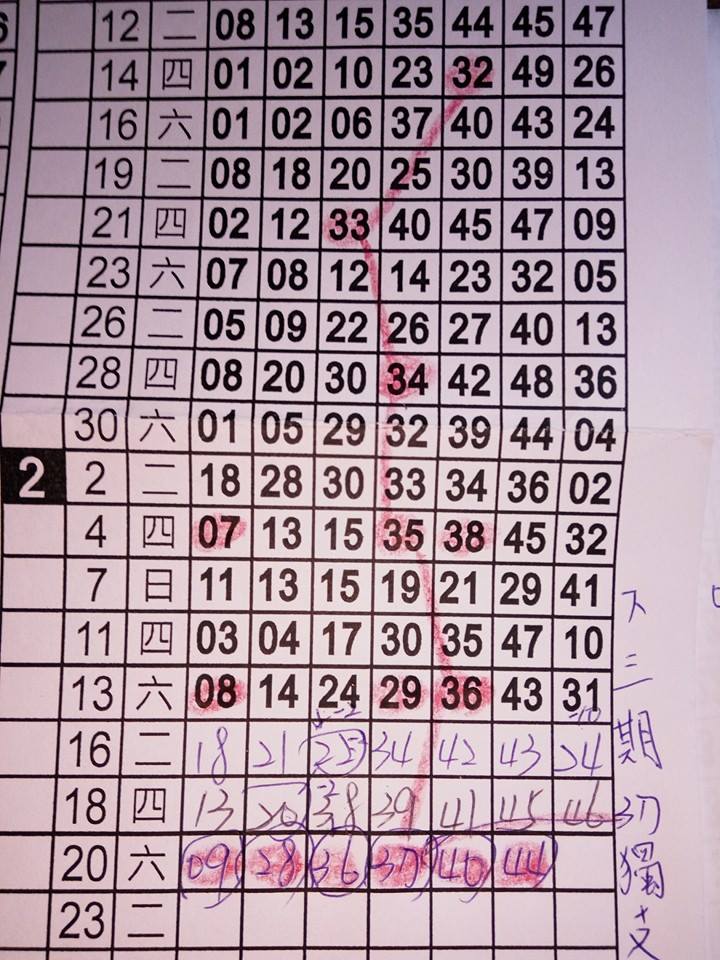 12 二 08 13 15 35 44 45 47
14 四 01 02 10 23 32 49 26
16 六 01 02 06 37 40 43 24
19 二 08 18 20 25 30 39 13
21 四 02 12 33 40 45 47 09
23 六 07 08 12 14 23 32 05
26 二 05 09 22 26 27 40 13
28 四 08 20 30 34 42 48 36
30 六 01 05 29 32 39 44 04
2 2 二 18 28 30 33 34 36 02
4 四 07 13 15 35 38 45 32
7 日 11 13 15 19 21 29 41
11 四 03 04 17 30 35 47 10
13 六 08 14 24 29 36 43 31
16 二 18 21 25 34 42 43 24
18 四 13 20 38 39 41 45 46
20 六 09 28 36 37 40 44
23 二
下三期37獨支